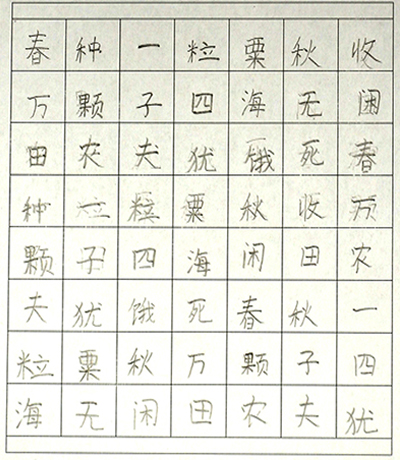 春种一粒粟秋收
万颗子四海无闲
田农夫犹饿死春
种一粒粟秋收万
颗子四海闲田农
夫犹饿死春秋一
粒粟秋万颗子四
海无闲田农夫犹